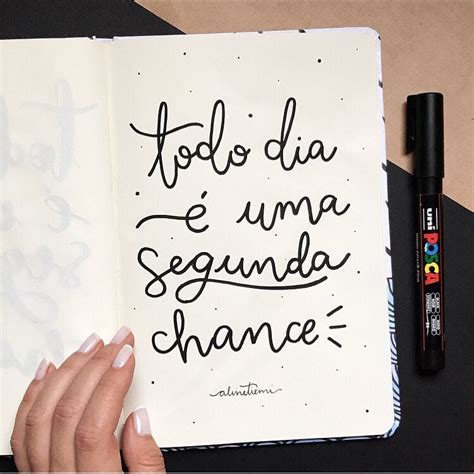 todo dia
é uma
segunda
chance
alinetiemi
uni
POSCA